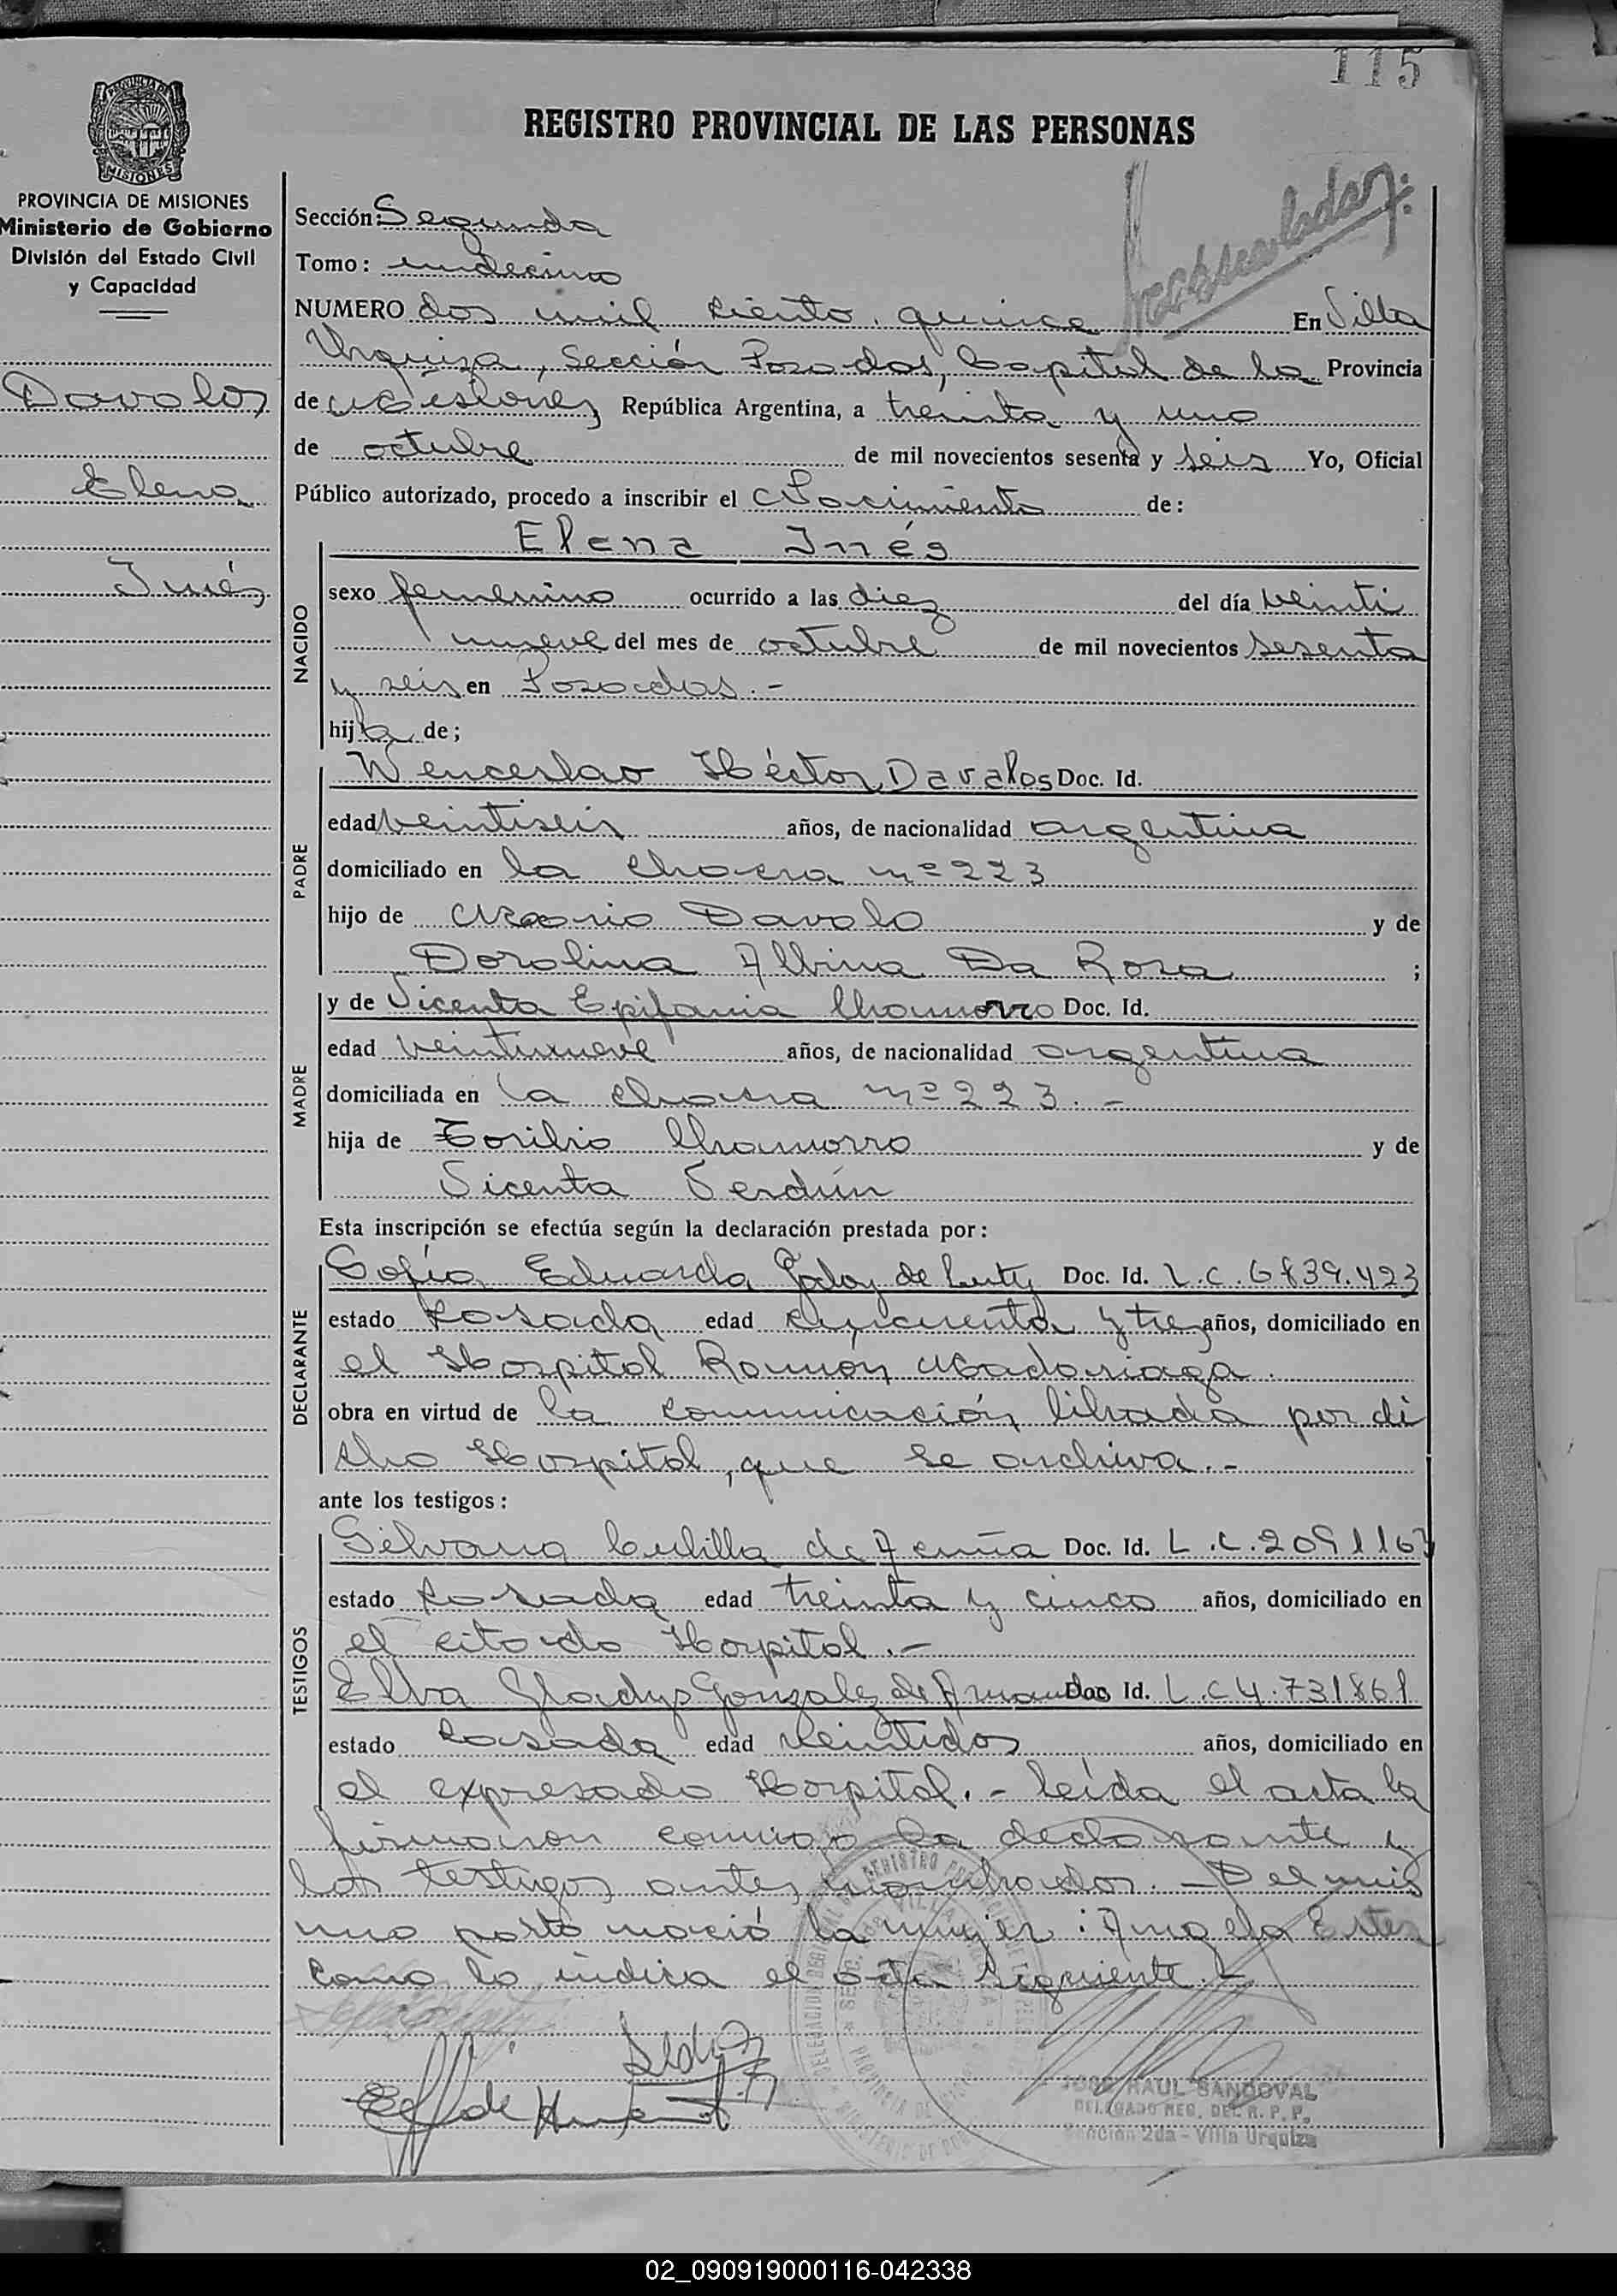 115
REGISTRO PROVINCIAL DE LAS PERSONAS
PROVINCIA DE MISIONES
Ministerio de Gobierno
División del Estado Civil
y Capacidad
Davalos
Elena
Inés
Sección: Segunda
Tomo: undecimo
NUMERO dos mil ciento quince En Villa
Urquiza, Sección Posadas, Capital de la Provincia
de Misiones República Argentina, a treinta y uno
de octubre de mil novecientos sesenta y seis Yo, Oficial
Público autorizado, procedo a inscribir el Nacimiento de:
Elena Inés
NACIDO
sexo femenino ocurrido a las diez del día veinti
nueve del mes de octubre de mil novecientos sesenta
y seis en Posadas.-
hija de;
PADRE
Wenceslao Héctor Davalos Doc. Id.
edad veintiseis años, de nacionalidad argentina
domiciliado en la chacra nº 223
hijo de Mario Davalo y de
Dorolina Albina Da Rosa ;
MADRE
y de Vicenta Epifania Chamorro Doc. Id.
edad veintinueve años, de nacionalidad argentina
domiciliada en la chacra nº 223.-
hija de Toribio Chamorro y de
Vicenta Verdún
Esta inscripción se efectúa según la declaración prestada por:
DECLARANTE
Sofía Eduarda Godoy de Doc. Id. L.C. 6839.423
estado casada edad cincuenta y tres años, domiciliado en
el Hospital Ramón Madariaga.
obra en virtud de la comunicación librada por di
cho Hospital, que se archiva.-
ante los testigos:
TESTIGOS
Silvana de Acuña Doc. Id. L.C. 2091163
estado casada edad treinta y cinco años, domiciliado en
el citado Hospital.-
Elva Gladys Gonzalez de Doc Id. L.C 4.731861
estado casada edad veintidos años, domiciliado en
el expresado Hospital.- leída el acta la
firmaron conmigo la declarante y
los testigos antes nombrados.- Del mis
mo parto nació la mujer: Angela Ester
como lo indica el acta siguiente.-
JOSE RAUL SANDOVAL
DELEGADO REG. DEL R. P. P.
Sección 2da - Villa Urquiza
02_090919000116-042338